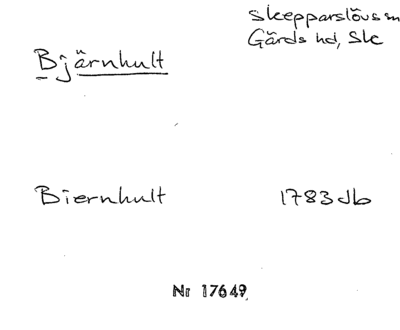 Skepparslövs sn
Gärds hd, Sk
Bjärnhult
Biernhult 1783 db
Nr 17649